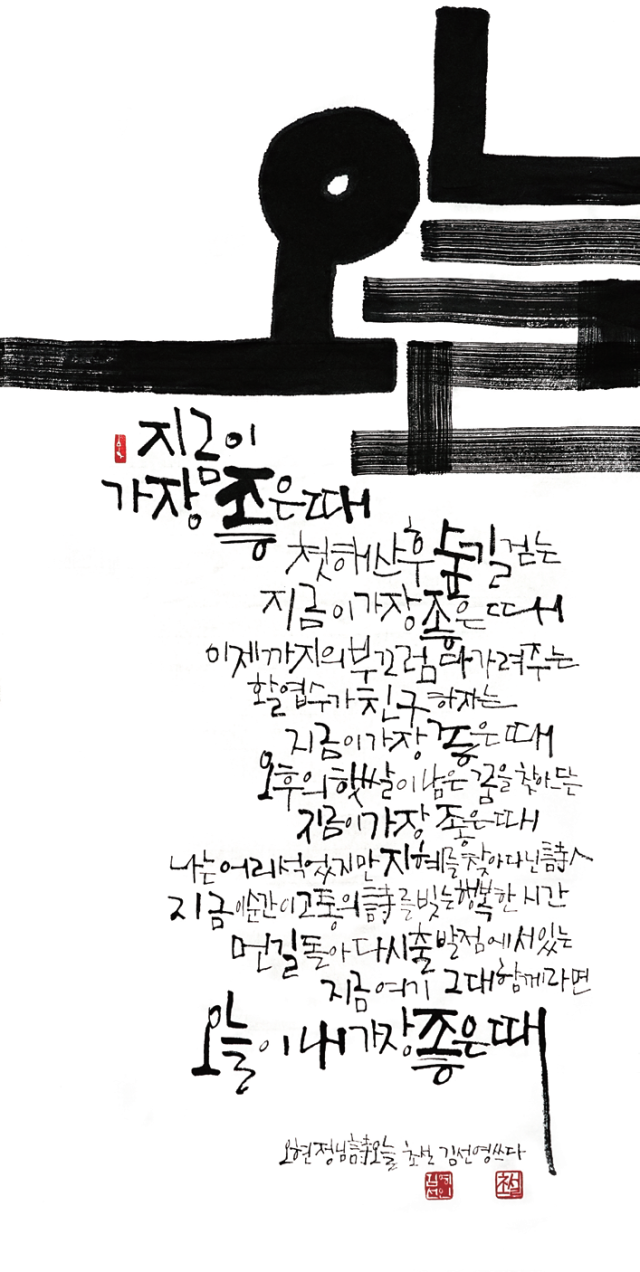 오늘
지금이
가장 좋은 때
첫해 산후 숲길 걷는
지금이 가장 좋은 때
이제까지의 부끄럼 다 가려주는
활엽수가 친구하자는
지금이 가장 좋은 때
오후의 햇쌀이 남은 꿈을 찾아드는
지금이 가장 좋은 때
나는 어리석었지만 지혜를 찾아다닌 詩人
지금 이순간이 고통의 詩를 빚는 행복한 시간
먼길 돌아 다시 출발점에 서있는
지금 여기 그대 함께라면
오늘이 내 가장 좋은 때
오현정님 詩 오늘 김선영 쓰다